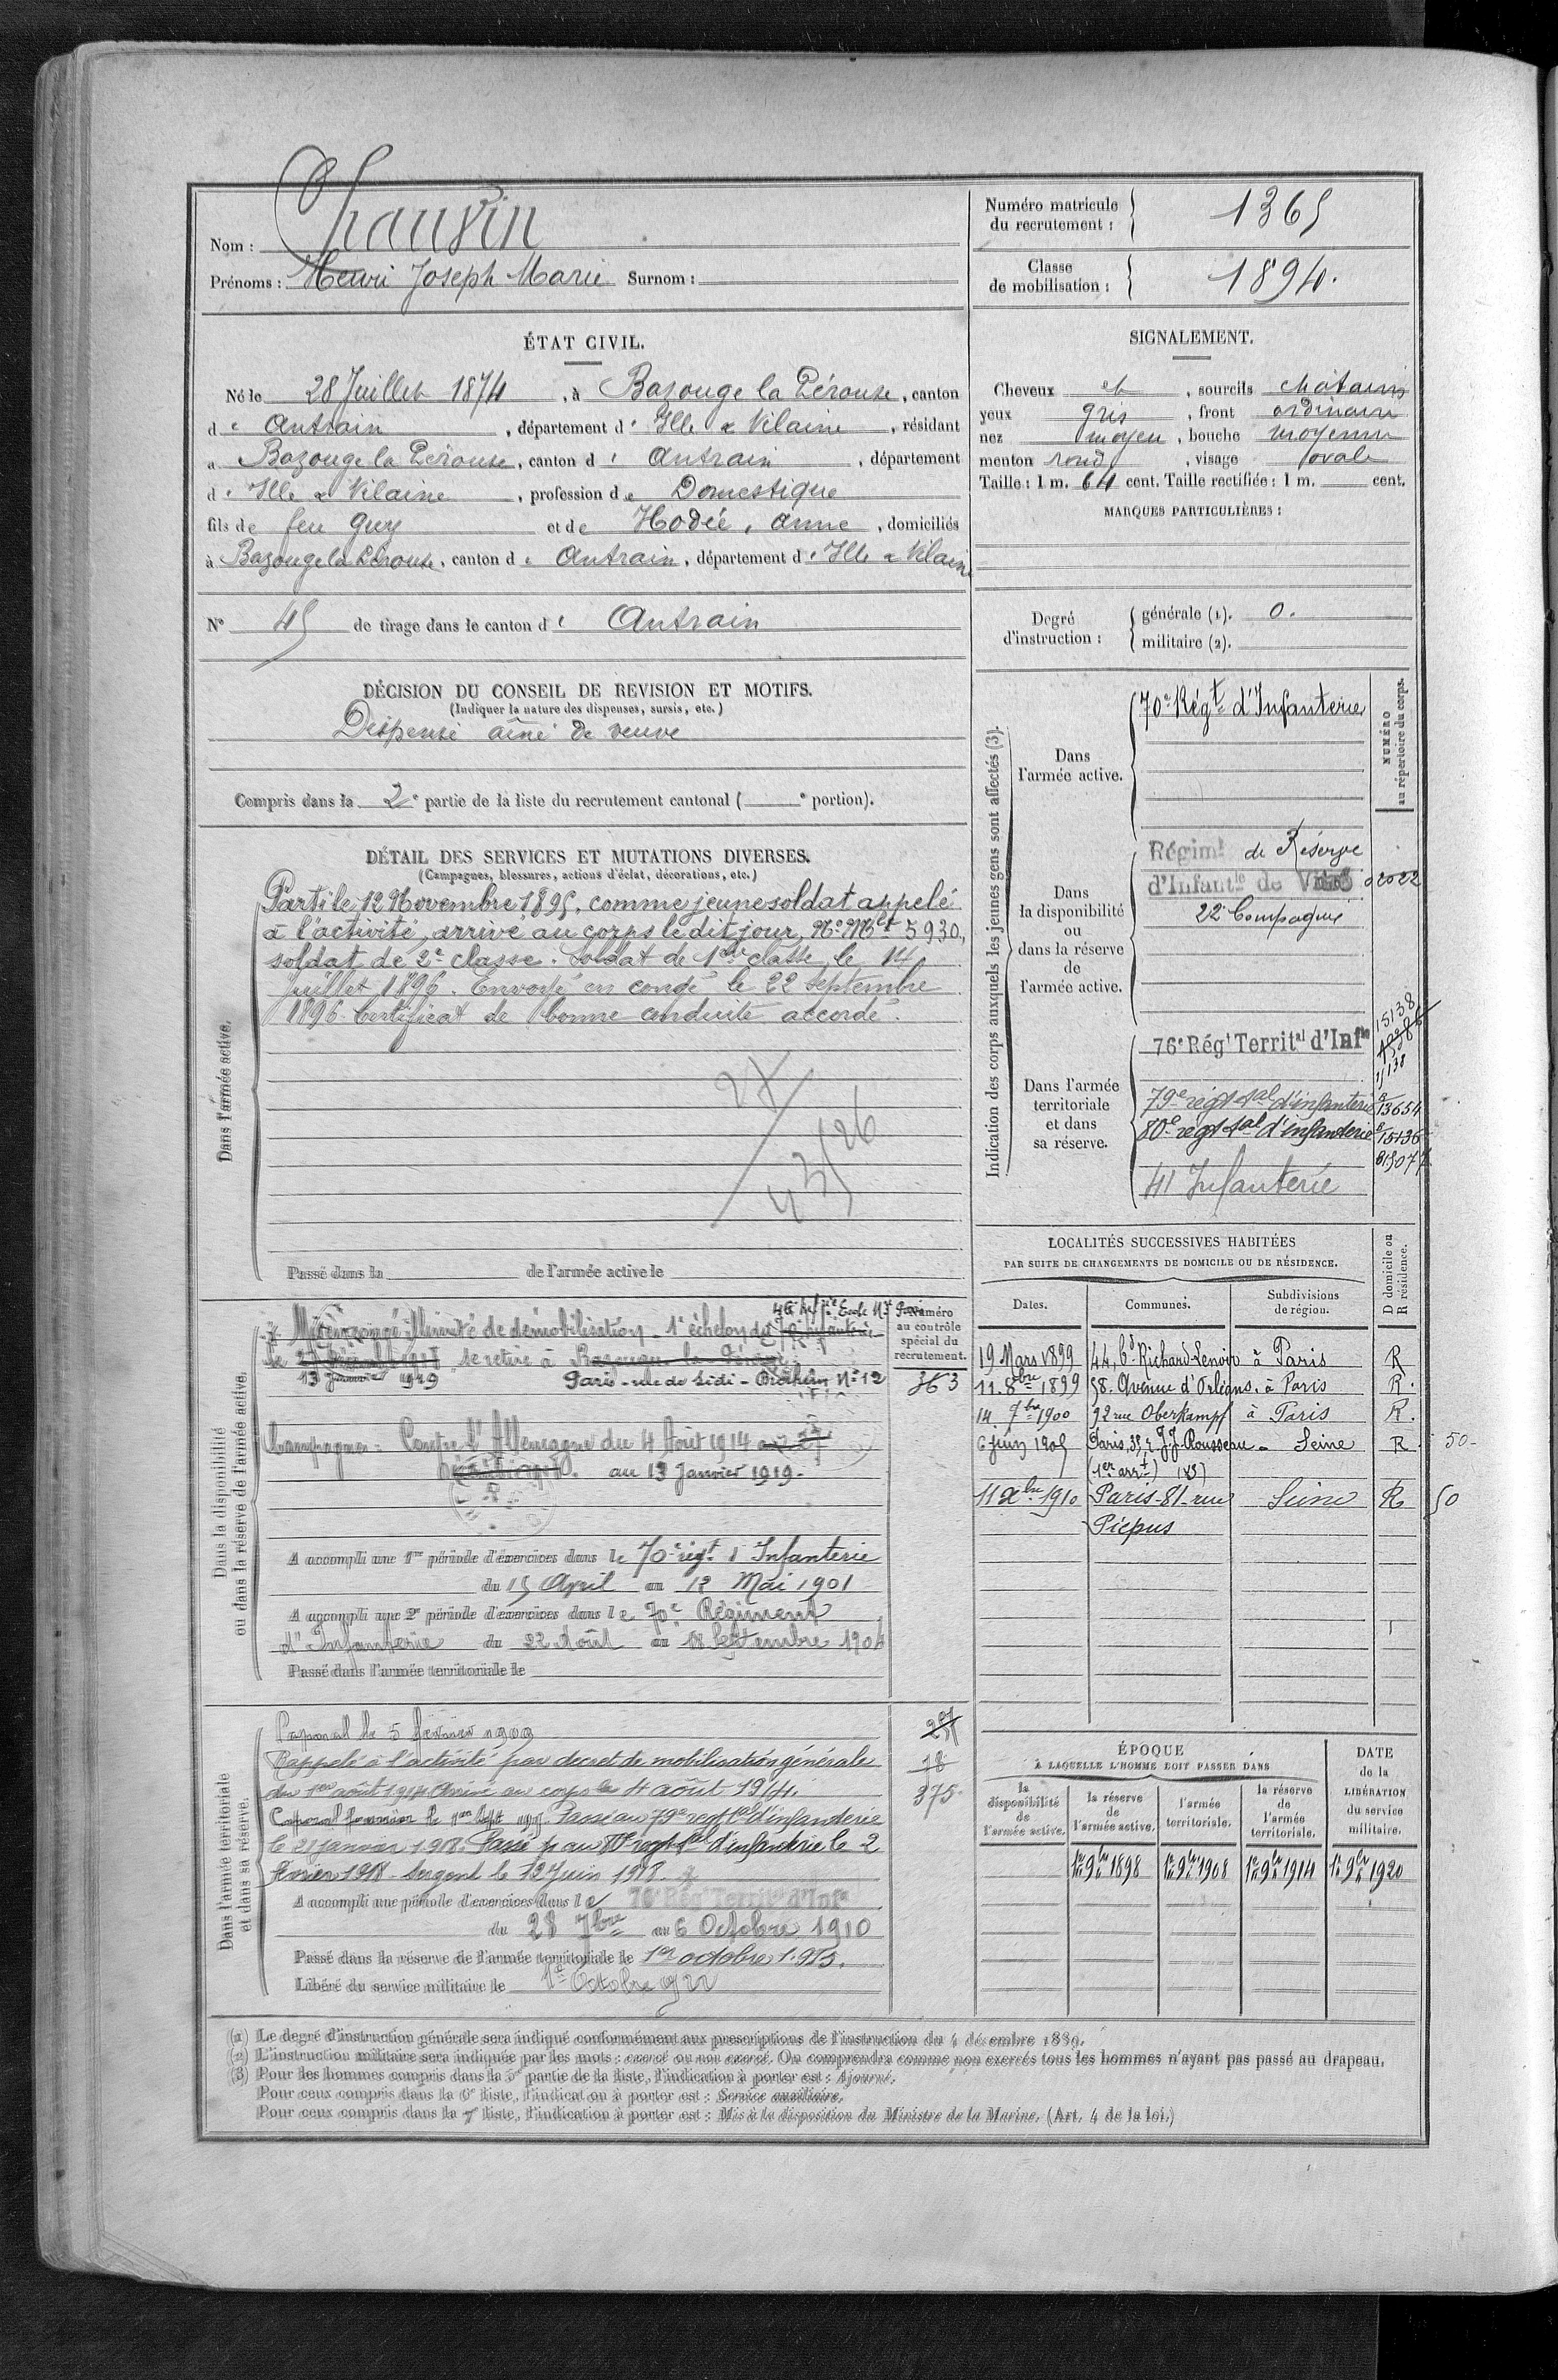 Nom : Chauvin
Prénoms : Henri Joseph Marie Surnom :
Numéro matricule du recrutement : 1365
Classe de mobilisation : 1894.
ÉTAT CIVIL.
Né le 28 Juillet 1874, à Bazouge la Pérouse, canton
d'Antrain, département d'Ille & Vilaine, résidant
à Bazouge la Pérouse, canton d'Antrain, département
d'Ille & Vilaine, profession de Domestique
fils de feu Guy et de Hodée, Anne, domiciliés
à Bazouge la Pérouse, canton d'Antrain, département d'Ille & Vilaine
N° 45 de tirage dans le canton d'Antrain
SIGNALEMENT.
Cheveux et, sourcils châtains
yeux gris, front ordinaire
nez moyen, bouche moyenne
menton rond, visage ovale
Taille : 1 m. 64 cent. Taille rectifiée : 1 m. cent.
MARQUES PARTICULIÈRES :
Degré d'instruction :
générale (1). 0.
militaire (2).
DÉCISION DU CONSEIL DE REVISION ET MOTIFS.
(Indiquer la nature des dispenses, sursis, etc.)
Dispensé aîné de veuve
Compris dans la 2e partie de la liste du recrutement cantonal ( e portion).
DÉTAIL DES SERVICES ET MUTATIONS DIVERSES.
(Campagnes, blessures, actions d'éclat, décorations, etc.)
Dans l'armée active.
Parti le 12 Novembre 1895, comme jeune soldat appelé
à l'activité, arrivé au corps le dit jour, N° Mle 5930,
soldat de 2e classe. Soldat de 1re classe le 14
Juillet 1896. Envoyé en congé le 22 Septembre
1896. Certificat de bonne conduite accordé.
Passé dans la de l'armée active le
Indication des corps auxquels les jeunes gens sont affectés (3).
NUMÉRO au répertoire du corps.
Dans l'armée active.
70e Régt d'Infanterie
Dans la disponibilité ou dans la réserve de l'armée active.
Régimt de Réserve
d'Infantie de Vitré 02022
22e Compagnie
Dans l'armée territoriale et dans sa réserve.
76e Régt Territal d'Infie
15138
79e régt tal d'infanterie 13654
80e régt tal d'infanterie 15136
41 Infanterie
LOCALITÉS SUCCESSIVES HABITÉES
PAR SUITE DE CHANGEMENTS DE DOMICILE OU DE RÉSIDENCE.
Dates. Communes. Subdivisions de région. D domicile ou R résidence.
19 Mars 1899 44, Bd Richard-Lenoir à Paris R
11. 8bre 1899 58. Avenue d'Orléans. à Paris R.
14. 7bre 1900 92 rue Oberkampf à Paris R.
6 Juin 1905 Paris, 35, r. J.J. Rousseau - Seine R 50-
(1er arrt)
11 Xbre 1910 Paris - 81 - rue Seine R 50
Picpus
Dans la disponibilité ou dans la réserve de l'armée active.
Numéro au contrôle spécial du recrutement.
Mis en congé illimité de démobilisation 1e échelon
se retire à Bazouge la Pérouse
13 Janvier 1919 Paris - rue de Sidi-Brahim N° 12 363
Campagnes : Contre l'Allemagne du 4 Août 1914
au 13 Janvier 1919.
A accompli une 1re période d'exercices dans le 70e régt d'Infanterie
du 15 Avril au 12 Mai 1901
A accompli une 2e période d'exercices dans le 70e Régiment
d'Infanterie du 22 Août au 18 Septembre 1904
Passé dans l'armée territoriale le
Dans l'armée territoriale et dans sa réserve.
Caporal le 5 février 1909
Rappelé à l'activité par décret de mobilisation générale 18
du 1er août 1914. Arrivé au corps le 4 août 1914. 375
Caporal fourrier le 1er Sept 1915. Passé au 79e régt tal d'infanterie
le 21 janvier 1918. Passé au 80e régt tal d'infanterie le 2
février 1918. Sergent le 12 Juin 1918.
A accompli une période d'exercices dans le 76e Régt Territal d'Infie
du 28 7bre au 6 Octobre 1910
Passé dans la réserve de l'armée territoriale le 1er octobre 1915.
Libéré du service militaire le 1er Octobre
ÉPOQUE
À LAQUELLE L'HOMME DOIT PASSER DANS
la disponibilité de l'armée active. la réserve de l'armée active. l'armée territoriale. la réserve de l'armée territoriale.
DATE de la LIBÉRATION du service militaire.
1er 9bre 1898 1er 9bre 1908 1er 9bre 1914 1er 9bre 1920
(1) Le degré d'instruction générale sera indiqué conformément aux prescriptions de l'instruction du 4 décembre 1889.
(2) L'instruction militaire sera indiquée par les mots : exercé ou non exercé. On comprendra comme non exercés tous les hommes n'ayant pas passé au drapeau.
(3) Pour les hommes compris dans la 5e partie de la liste, l'indication à porter est : Ajourné.
Pour ceux compris dans la 6e liste, l'indication à porter est : Service auxiliaire.
Pour ceux compris dans la 7e liste, l'indication à porter est : Mis à la disposition du Ministre de la Marine. (Art. 4 de la loi.)